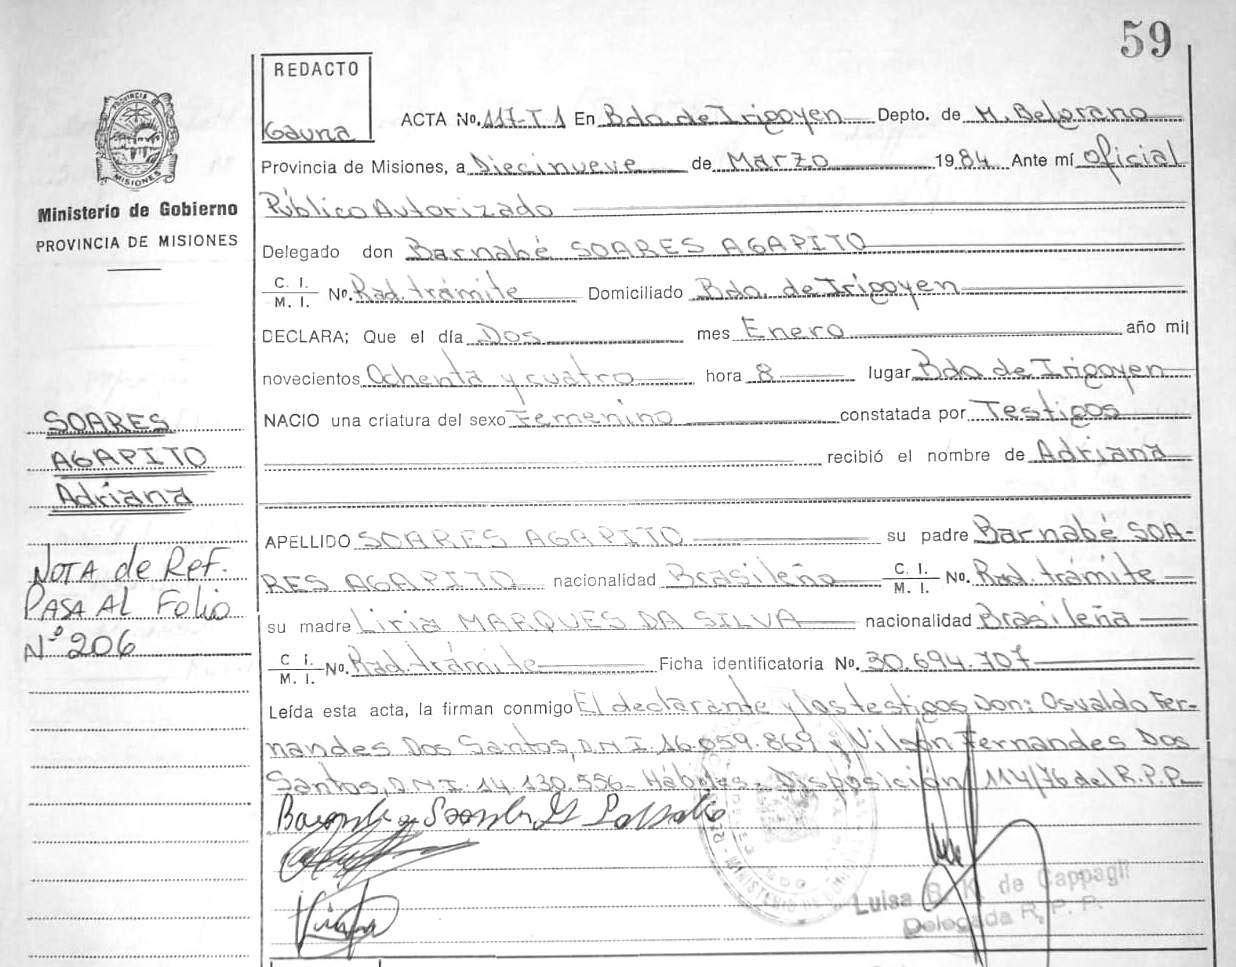 59
REDACTO
Gauna
ACTA No. 117-T 1 En Bdo de Irigoyen Depto. de M. Belgrano
Provincia de Misiones, a Diecinueve de Marzo 1984 Ante mí Oficial
Público Autorizado
Delegado don Barnabé SOARES AGAPITO
C. I.
M. I. No. Rad. trámite Domiciliado Bdo. de Irigoyen
DECLARA; Que el día Dos mes Enero año mil
novecientos Ochenta y cuatro hora 8 lugar Bdo de Irigoyen
NACIO una criatura del sexo Femenino constatada por Testigos
recibió el nombre de Adriana
APELLIDO SOARES AGAPITO su padre Barnabé SOA-
RES AGAPITO nacionalidad Brasileño C. I. M. I. No. Rad. trámite
su madre Liria MARQUES DA SILVA nacionalidad Brasileña
C. I.
M. I. No. Rad. trámite Ficha identificatoria No. 30.694.707
Leída esta acta, la firman conmigo El declarante y los testigos Don: Osvaldo Fer-
nandes Dos Santos, D.N.I. 16.059.869 y Vilson Fernandes Dos
Santos, D.N.I. 14.130.556- Hábiles- Disposición 114/76 del R.P.P.
Luisa B. K. de Cappagli
Delegada R. P. P.
PROVINCIA DE
MISIONES
Ministerio de Gobierno
PROVINCIA DE MISIONES
SOARES
AGAPITO
Adriana
NOTA de REF.
PASA AL Folio
Nº 206